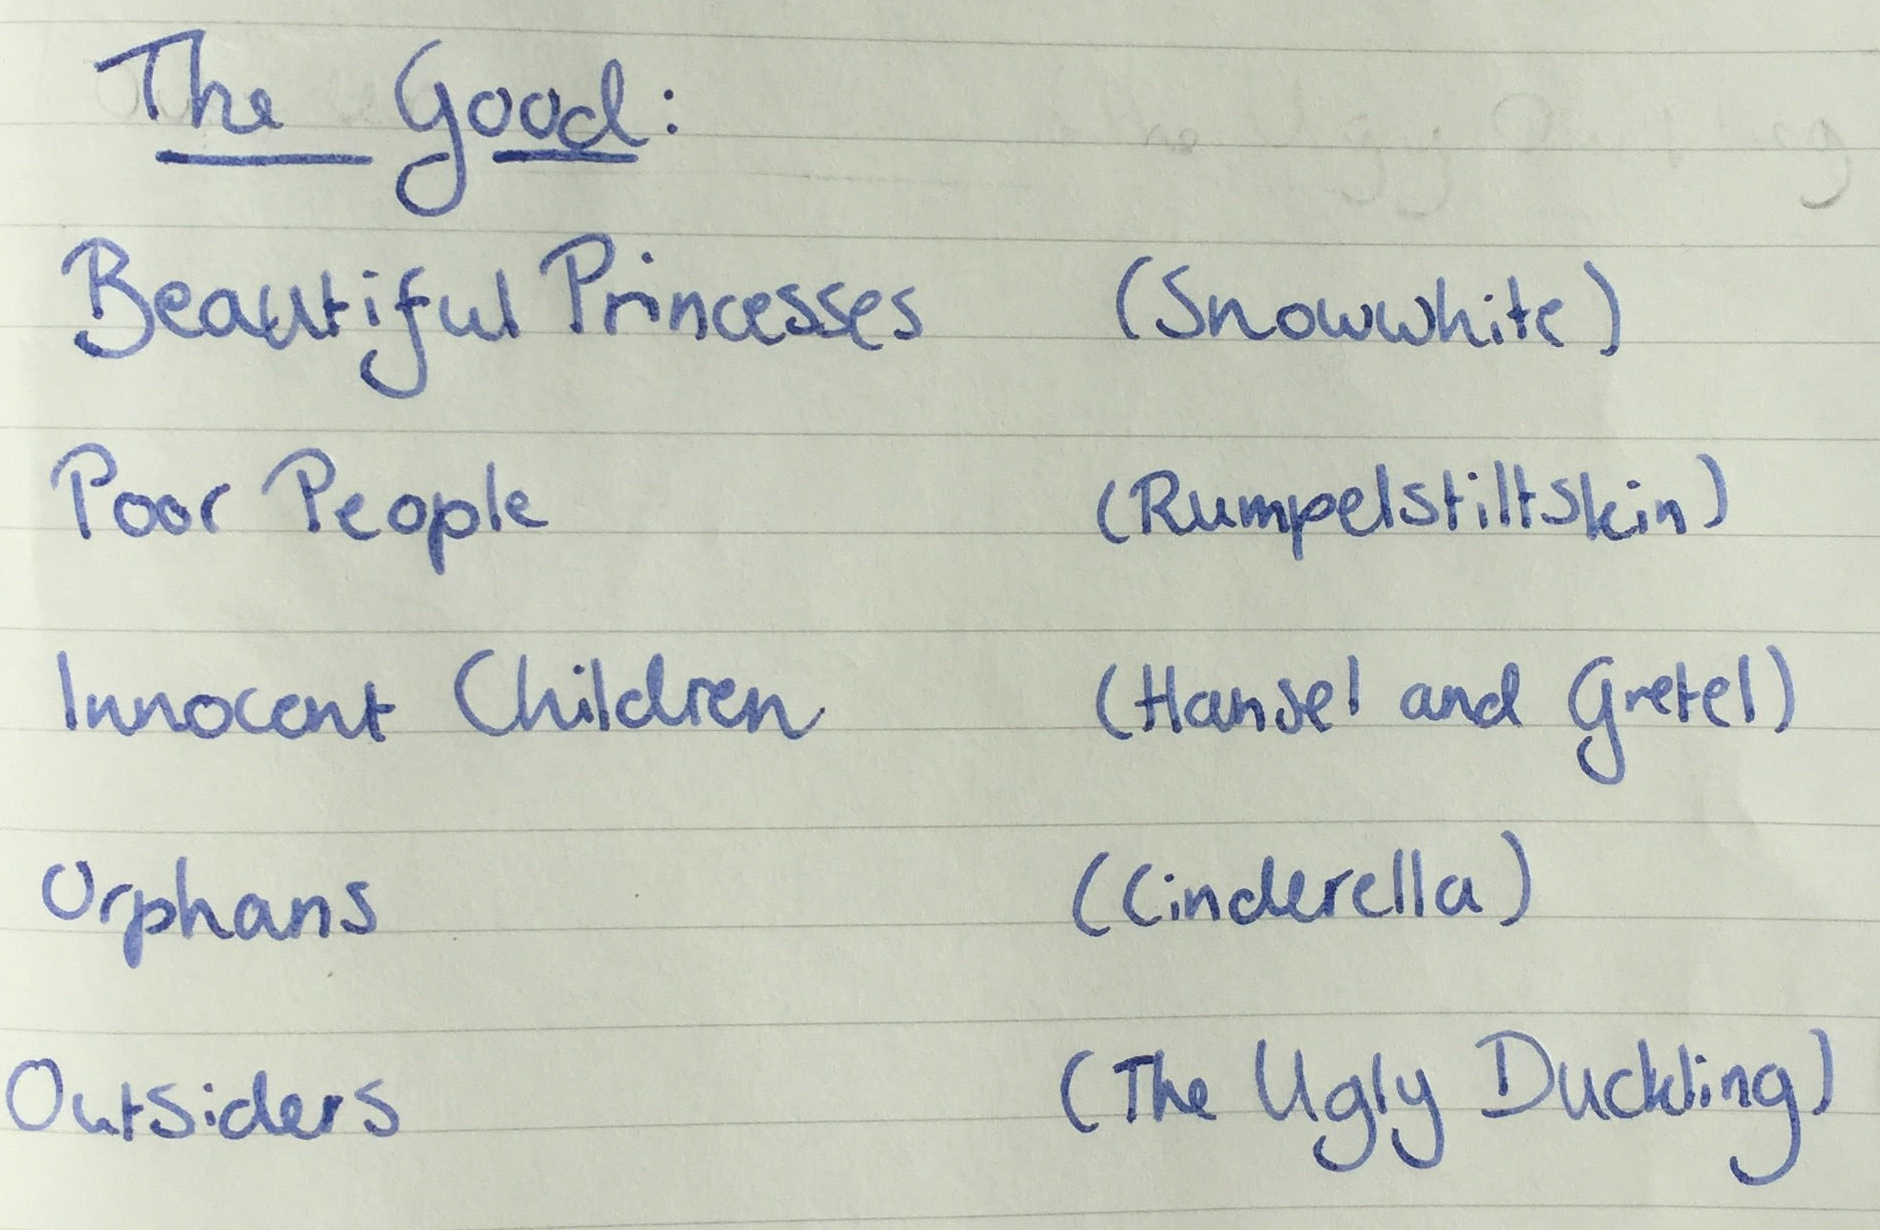 The Good:
Beautiful Princesses (Snowwhite)
Poor People (Rumpelstiltskin)
Innocent Children (Hansel and Gretel)
Orphans (Cinderella)
Outsiders (The Ugly Duckling)